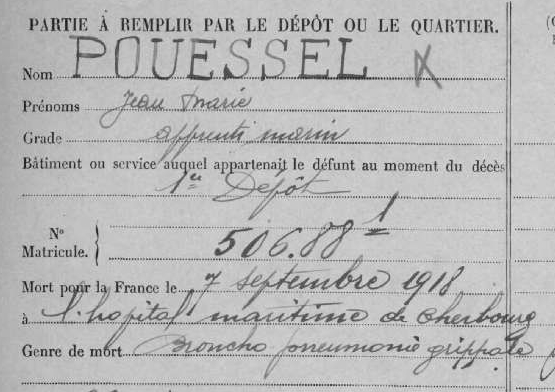 PARTIE À REMPLIR PAR LE DÉPÔT OU LE QUARTIER.
Nom POUESSEL X
Prénoms Jean Marie
Grade apprenti marin
Bâtiment ou service auquel appartenait le défunt au moment du décès
1er Dépôt
N° Matricule. 506.88 1
Mort pour la France le 7 septembre 1918
à l'hopital maritime de Cherbourg
Genre de mort Broncho pneumonie grippale